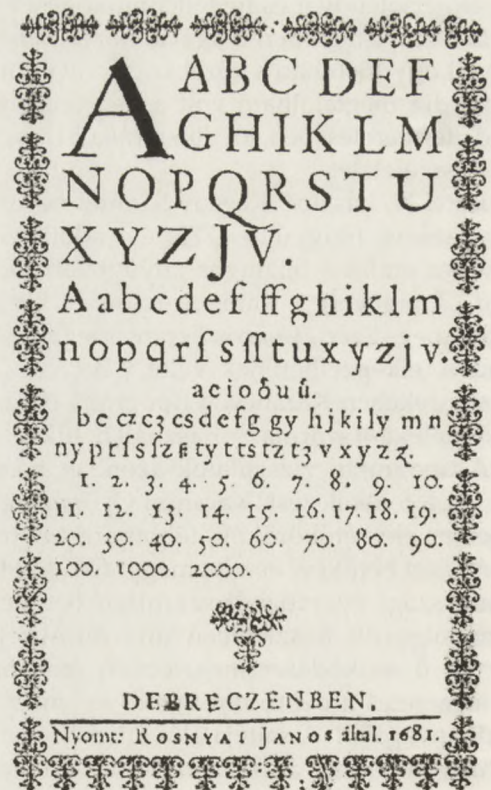 A ABC DEF
GHIKLM
NOPQRSTU
XYZJV.
Aabcdef ffghiklm
nopqrſsſſtuxyzjv.
aeioöuú.
bc cz cʒ csdefg gy hjkily mn
nyprſsſzßtyttstz tʒ vxyzz.
1. 2. 3. 4. 5. 6. 7. 8. 9. 10.
11. 12. 13. 14. 15. 16. 17. 18. 19.
20. 30. 40. 50. 60. 70. 80. 90.
100. 1000. 2000.
DEBRECZENBEN,
Nyomt: ROSNYAI JANOS által. 1681.